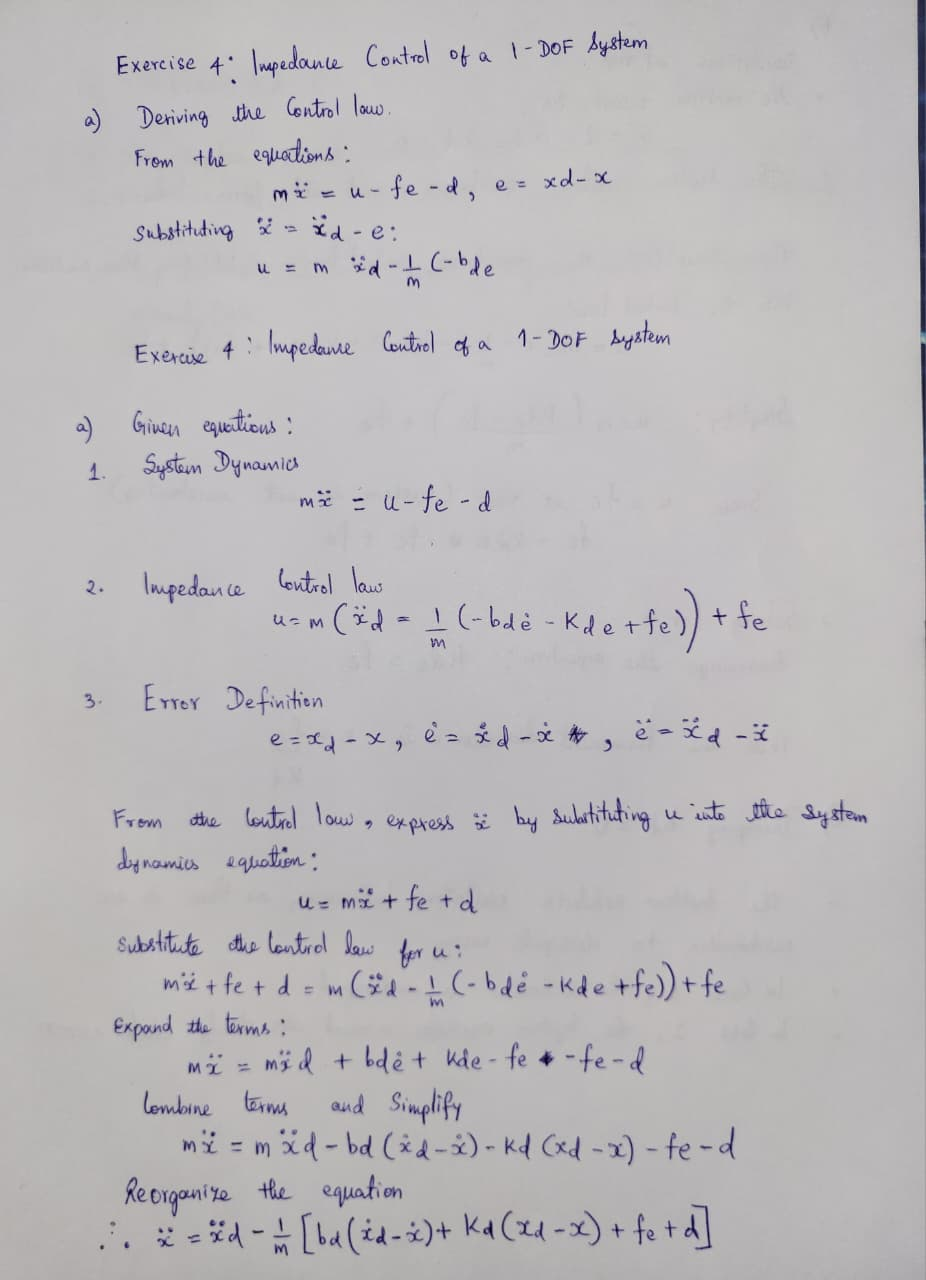 Exercise 4: Impedance Control of a 1-DOF System
a) Deriving the Control law.
From the equations:
mẍ = u - fe - d, e = xd - x
Substituting ẍ = ẍd - e:
u = m ẍd - 1/m (-bde
Exercise 4: Impedance Control of a 1-DOF System
a) Given equations:
1. System Dynamics
mẍ = u - fe - d
2. Impedance Control law
u = m (ẍd = 1/m (-bdė - Kde + fe)) + fe
3. Error Definition
e = xd - x, ė = ẋd - ẋ , ë = ẍd - ẍ
From the Control law, express ẍ by substituting u into the system
dynamics equation:
u = mẍ + fe + d
Substitute the Control law for u:
mẍ + fe + d = m (ẍd - 1/m (-bdė - Kde + fe)) + fe
Expand the terms:
mẍ = mẍd + bdė + Kde - fe - fe - d
Combine terms and Simplify
mẍ = mẍd - bd (ẋd - ẋ) - Kd (xd - x) - fe - d
Reorganize the equation
∴ ẍ = ẍd - 1/m [bd(ẋd - ẋ) + Kd (xd - x) + fe + d]